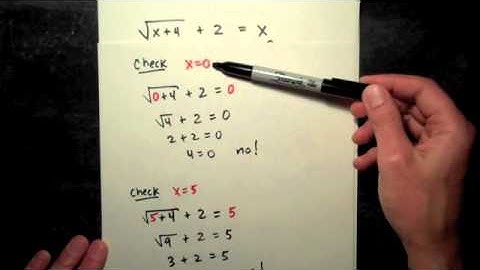 √x+4 + 2 = x
Check x=0
√0+4 + 2 = 0
√4 + 2 = 0
2 + 2 = 0
4 = 0 no!
Check x=5
√5+4 + 2 = 5
√9 + 2 = 5
3 + 2 = 5